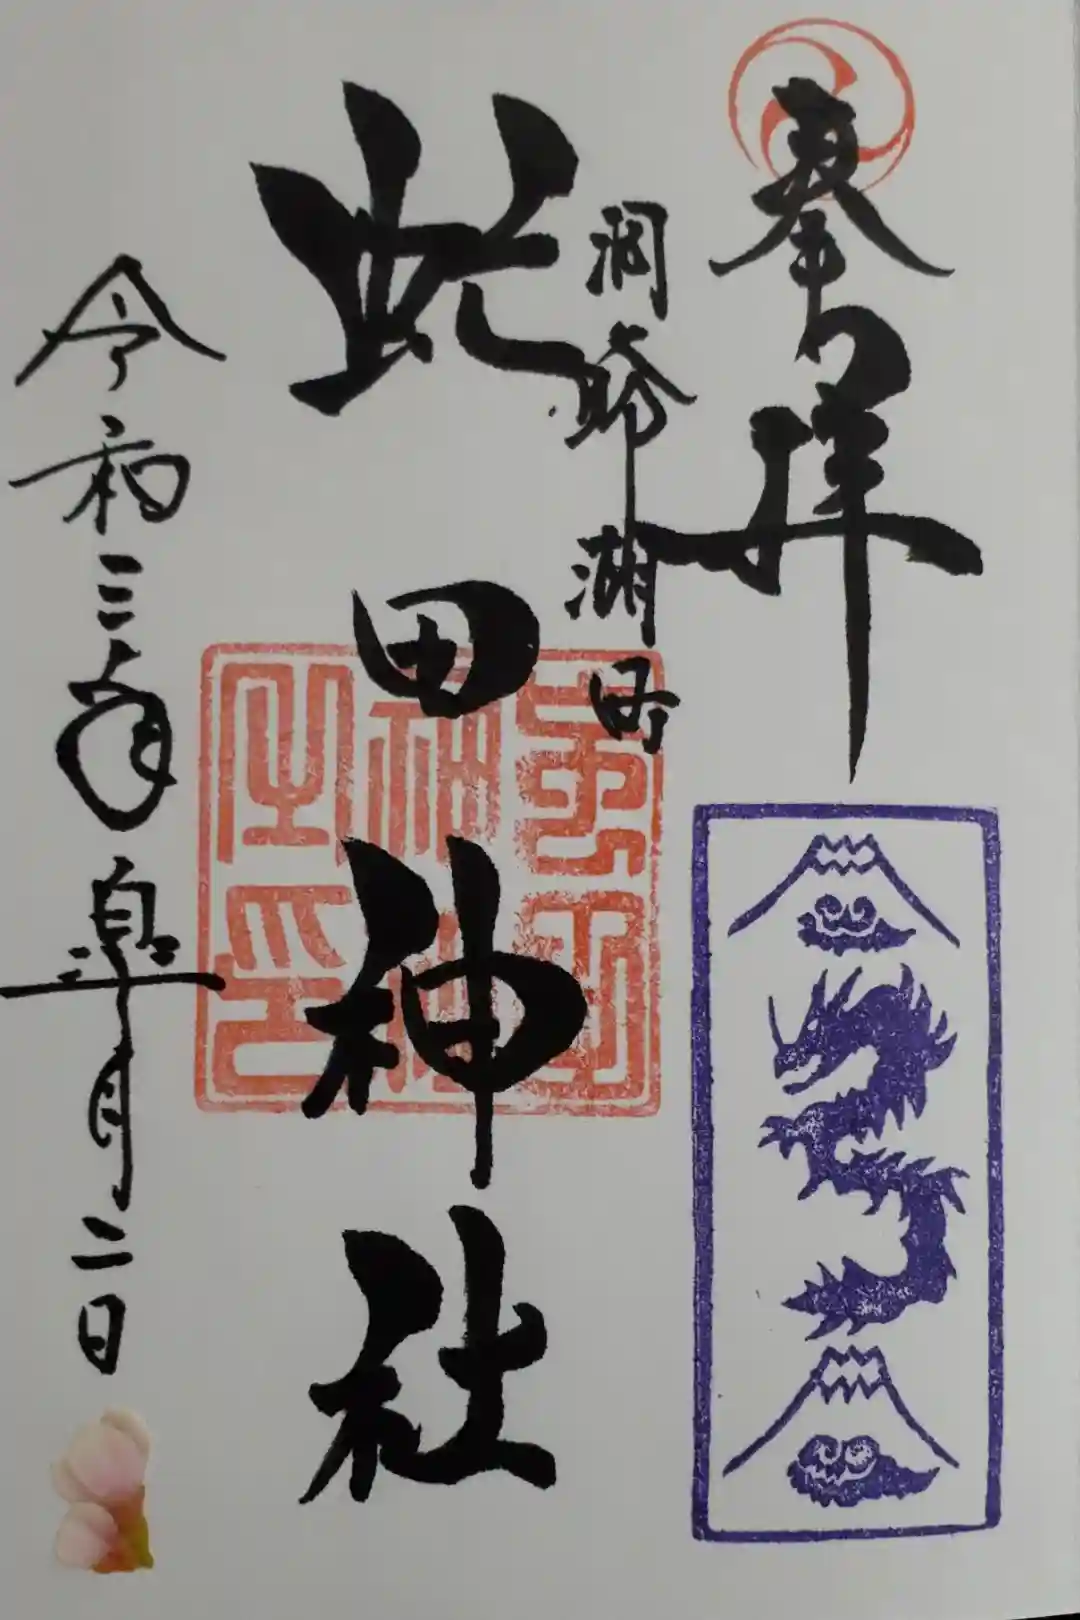 奉拝
洞爺湖町
虻田神社
令和三年皐月二日
虻田神社之印